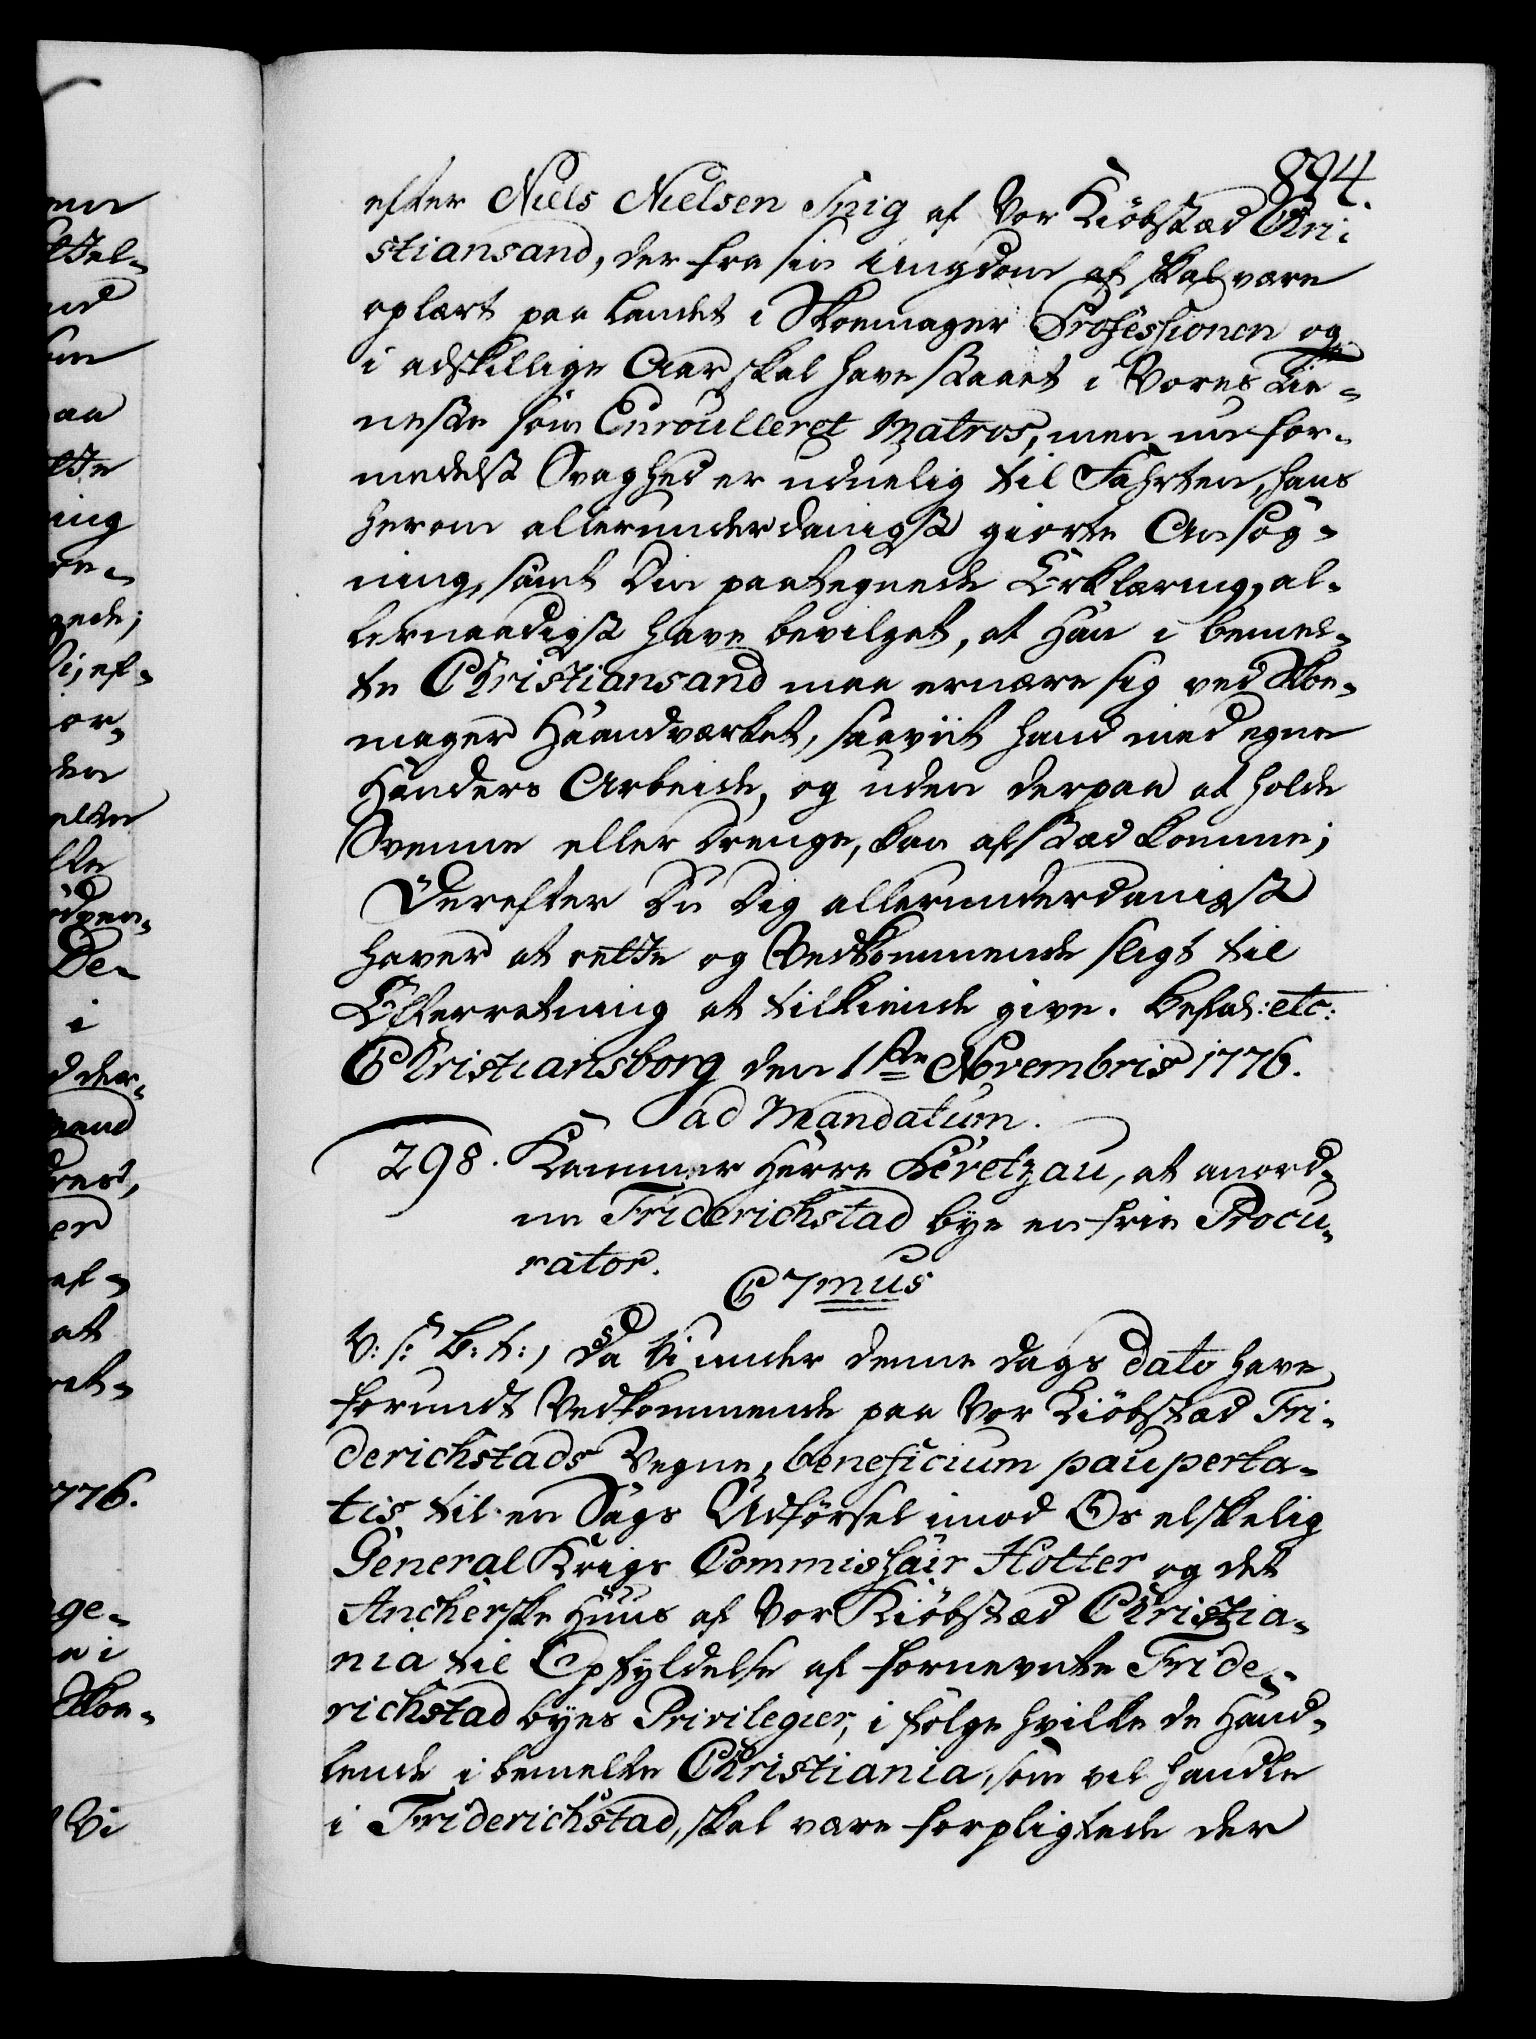 894.
efter Niels Nielsen Snig af Vor Kiöbstæd Chri-
stiansand, der fra sin Ungdom af skal være
oplært paa Landet i Skoemager Professionen og
i adskillige Aar skal have staaet i Vores Tie-
neste som Enroulleret Matros, men nu for-
medelst Svaghed er uduelig til Fahrten, hans
herom allerunderdanigst giorte Ansög-
ning, samt Din paategnede Erklæring, al-
lernaadigst have bevilget, at Han i bemel-
te Christiansand maa ernære sig ved Skoe-
mager Haandværket, saaviit hand med egne
Hænders Arbeide, og uden derpaa at holde
Svenne eller Drenge, kan afstæd komme;
Derefter Du Dig allerunderdanigst
haver at rette og Vedkommende sligt til
Efterretning at tilkiende give. Befal: etc:
Christiansborg den 1ste Novembris 1776.
ad Mandatum.
298. Kammer Herre Levetzau, at anord-
ne Friderichstad bye en frie Procu-
rator.
C 7mus
V: S: B: t:, Da Vi under denne Dags Dato have
forundt Vedkommende paa Vor Kiöbstæd Fri-
derichstads Vegne, beneficium pauperta-
tis til en Sags Udförsel imod Os elskelig
General Krigs Commishair Hotter og det
Ancherske Huus af Vor Kiöbstæd Christia-
nia til Opfyldelse af fornevnte Fride-
richstad byes Privilegier, i fölge hvilke de Hand-
lende i bemelte Christiania, som vil handle
i Friderichstad, skal være forpligtede der